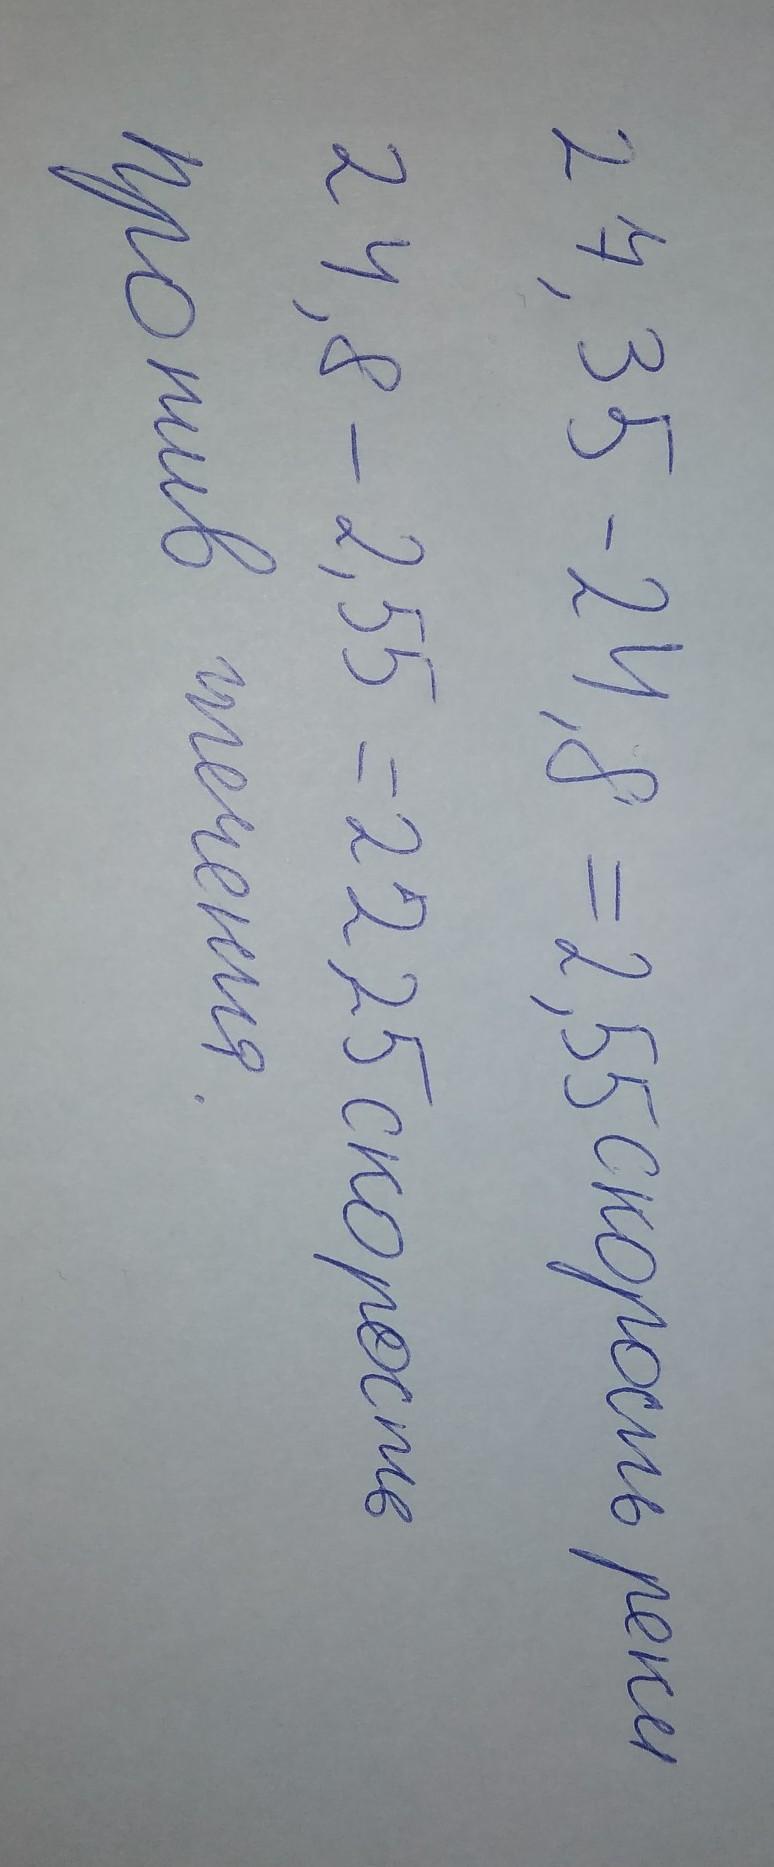 27,35 - 24,8 = 2,55 скорость реки
24,8 - 2,55 = 22,25 скорость
против течения.